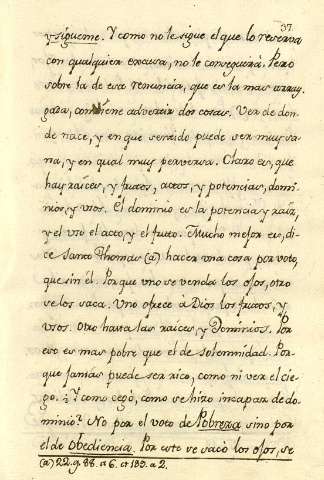 37.
y sigueme. Y como no le sigue el que lo reserva
con qualquier excusa, no le conseguirà. Pero
sobre la de esa renuncia, que es la mas array
gada, conviene advertir dos cosas. Ver de don
de nace, y en que sentido puede ser muy sa
na, y en qual muy perversa. Claro es, que
hay raices, y frutos, actos, y potencias, domi
nios, y usos. El dominio es la potencia y raiz,
y el uso el acto, y el fruto. Mucho mejor es, di
ce Santo Thomas (a) hacer una cosa por voto,
que sin él. Porque uno se venda los ojos, otro
se los saca. Uno ofrece à Dios los frutos, y
usos. Otro hasta las raices, y Dominios. Por
eso es mas pobre que el de solemnidad. Por
que jamas puede ser rico, como ni ver el cie
go. Y como cegò, como se hizo incapaz de do
minio? No por el voto de Pobreza sino por
el de Obediencia. Por este se sacò los ojos, se
(a) 22. q. 88. a 6. et 189. a 2.